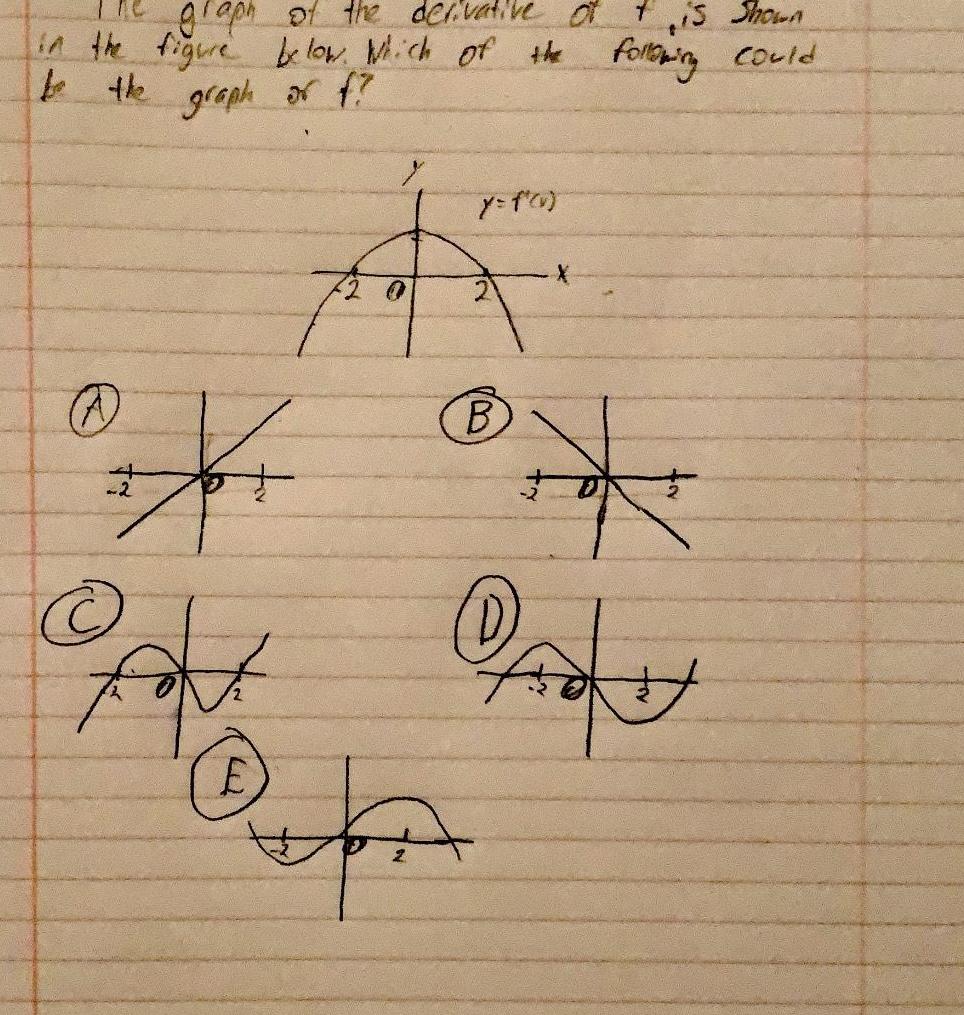 The graph of the derivative of f is shown
in the figure below. Which of the following could
be the graph of f?
y
y=f'(x)
-2 0 2 x
A B
-2 0 2 -2 0 2
C D
-2 0 2 -2 0 2
E
-2 0 2